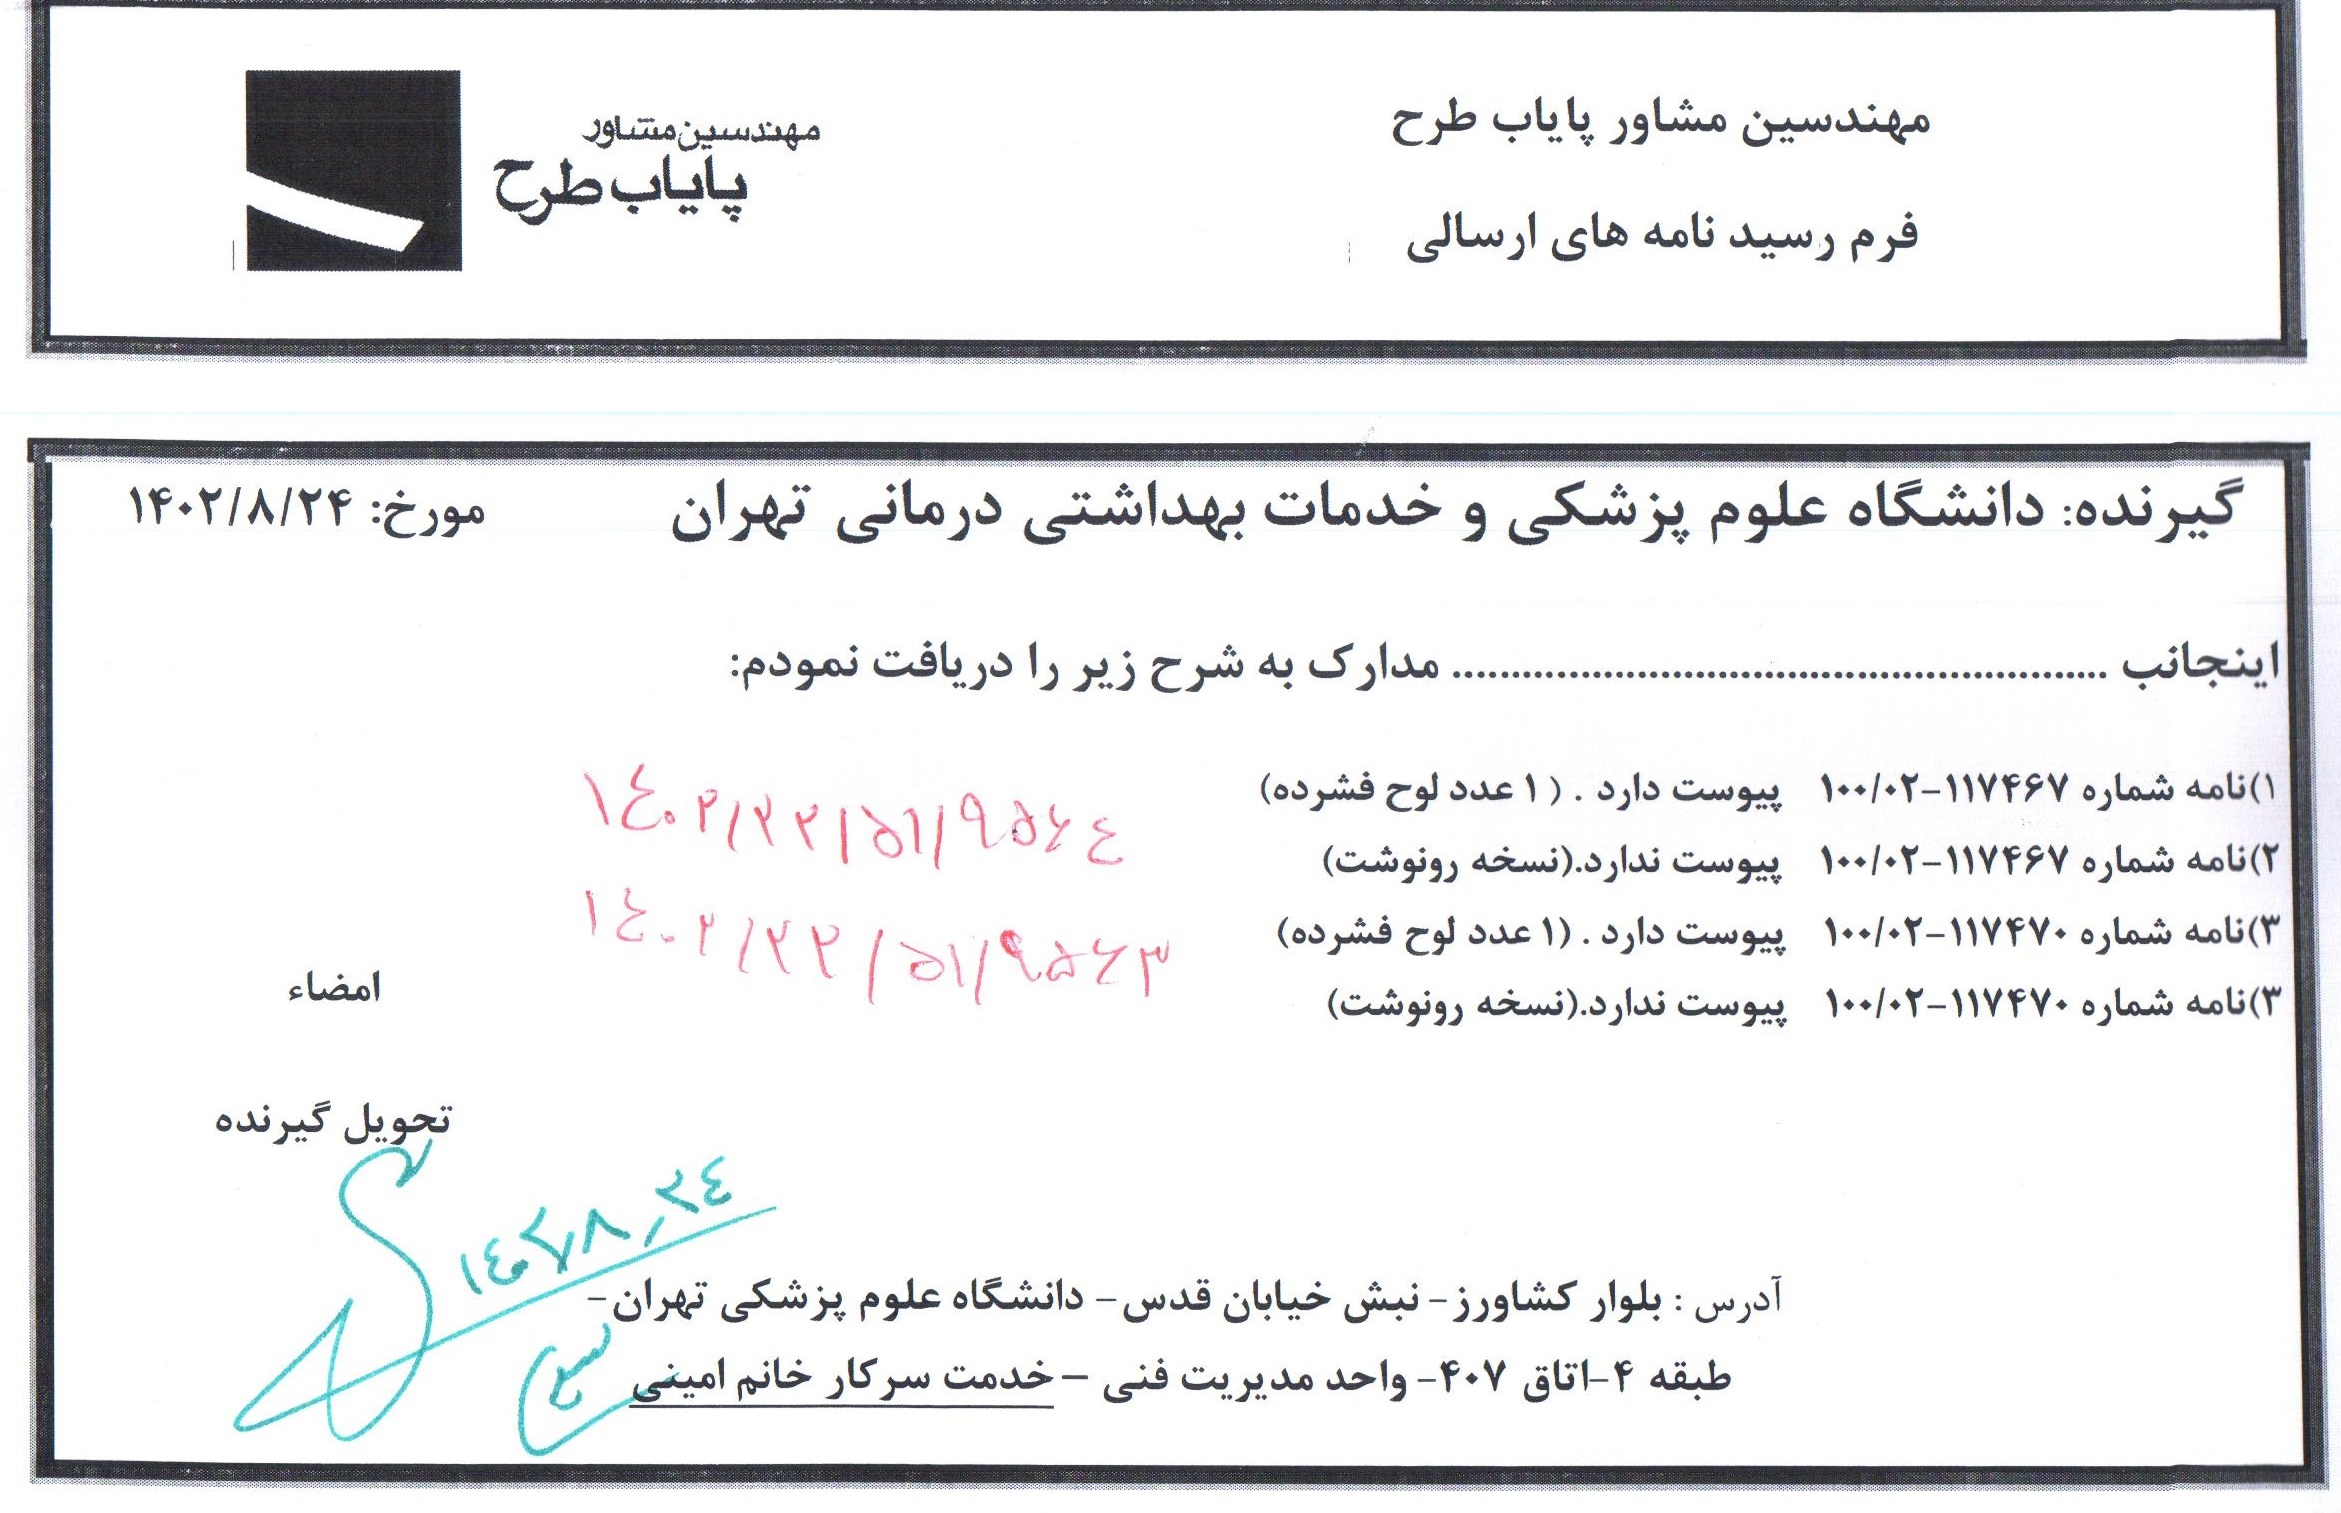 مهندسین مشاور پایاب طرح
مهندسین مشاور
پایاب طرح
فرم رسید نامه های ارسالی
گیرنده: دانشگاه علوم پزشکی و خدمات بهداشتی درمانی تهران مورخ: ۱۴۰۲/۸/۲۴
اینجانب ........................................................ مدارک به شرح زیر را دریافت نمودم:
۱)نامه شماره ۱۱۷۴۶۷-۱۰۰/۰۲ پیوست دارد . ( ۱ عدد لوح فشرده)
۱۴۰۲/۲۲/۵۱/۹۵۶۴
۲)نامه شماره ۱۱۷۴۶۷-۱۰۰/۰۲ پیوست ندارد.(نسخه رونوشت)
۳)نامه شماره ۱۱۷۴۷۰-۱۰۰/۰۲ پیوست دارد . (۱ عدد لوح فشرده)
۱۴۰۲/۲۲/۵۱/۹۵۶۳
۳)نامه شماره ۱۱۷۴۷۰-۱۰۰/۰۲ پیوست ندارد.(نسخه رونوشت)
امضاء
تحویل گیرنده
۱۴۰۲/۸/۲۴
آدرس : بلوار کشاورز- نبش خیابان قدس- دانشگاه علوم پزشکی تهران-
طبقه ۴-اتاق ۴۰۷- واحد مدیریت فنی – خدمت سرکار خانم امینی